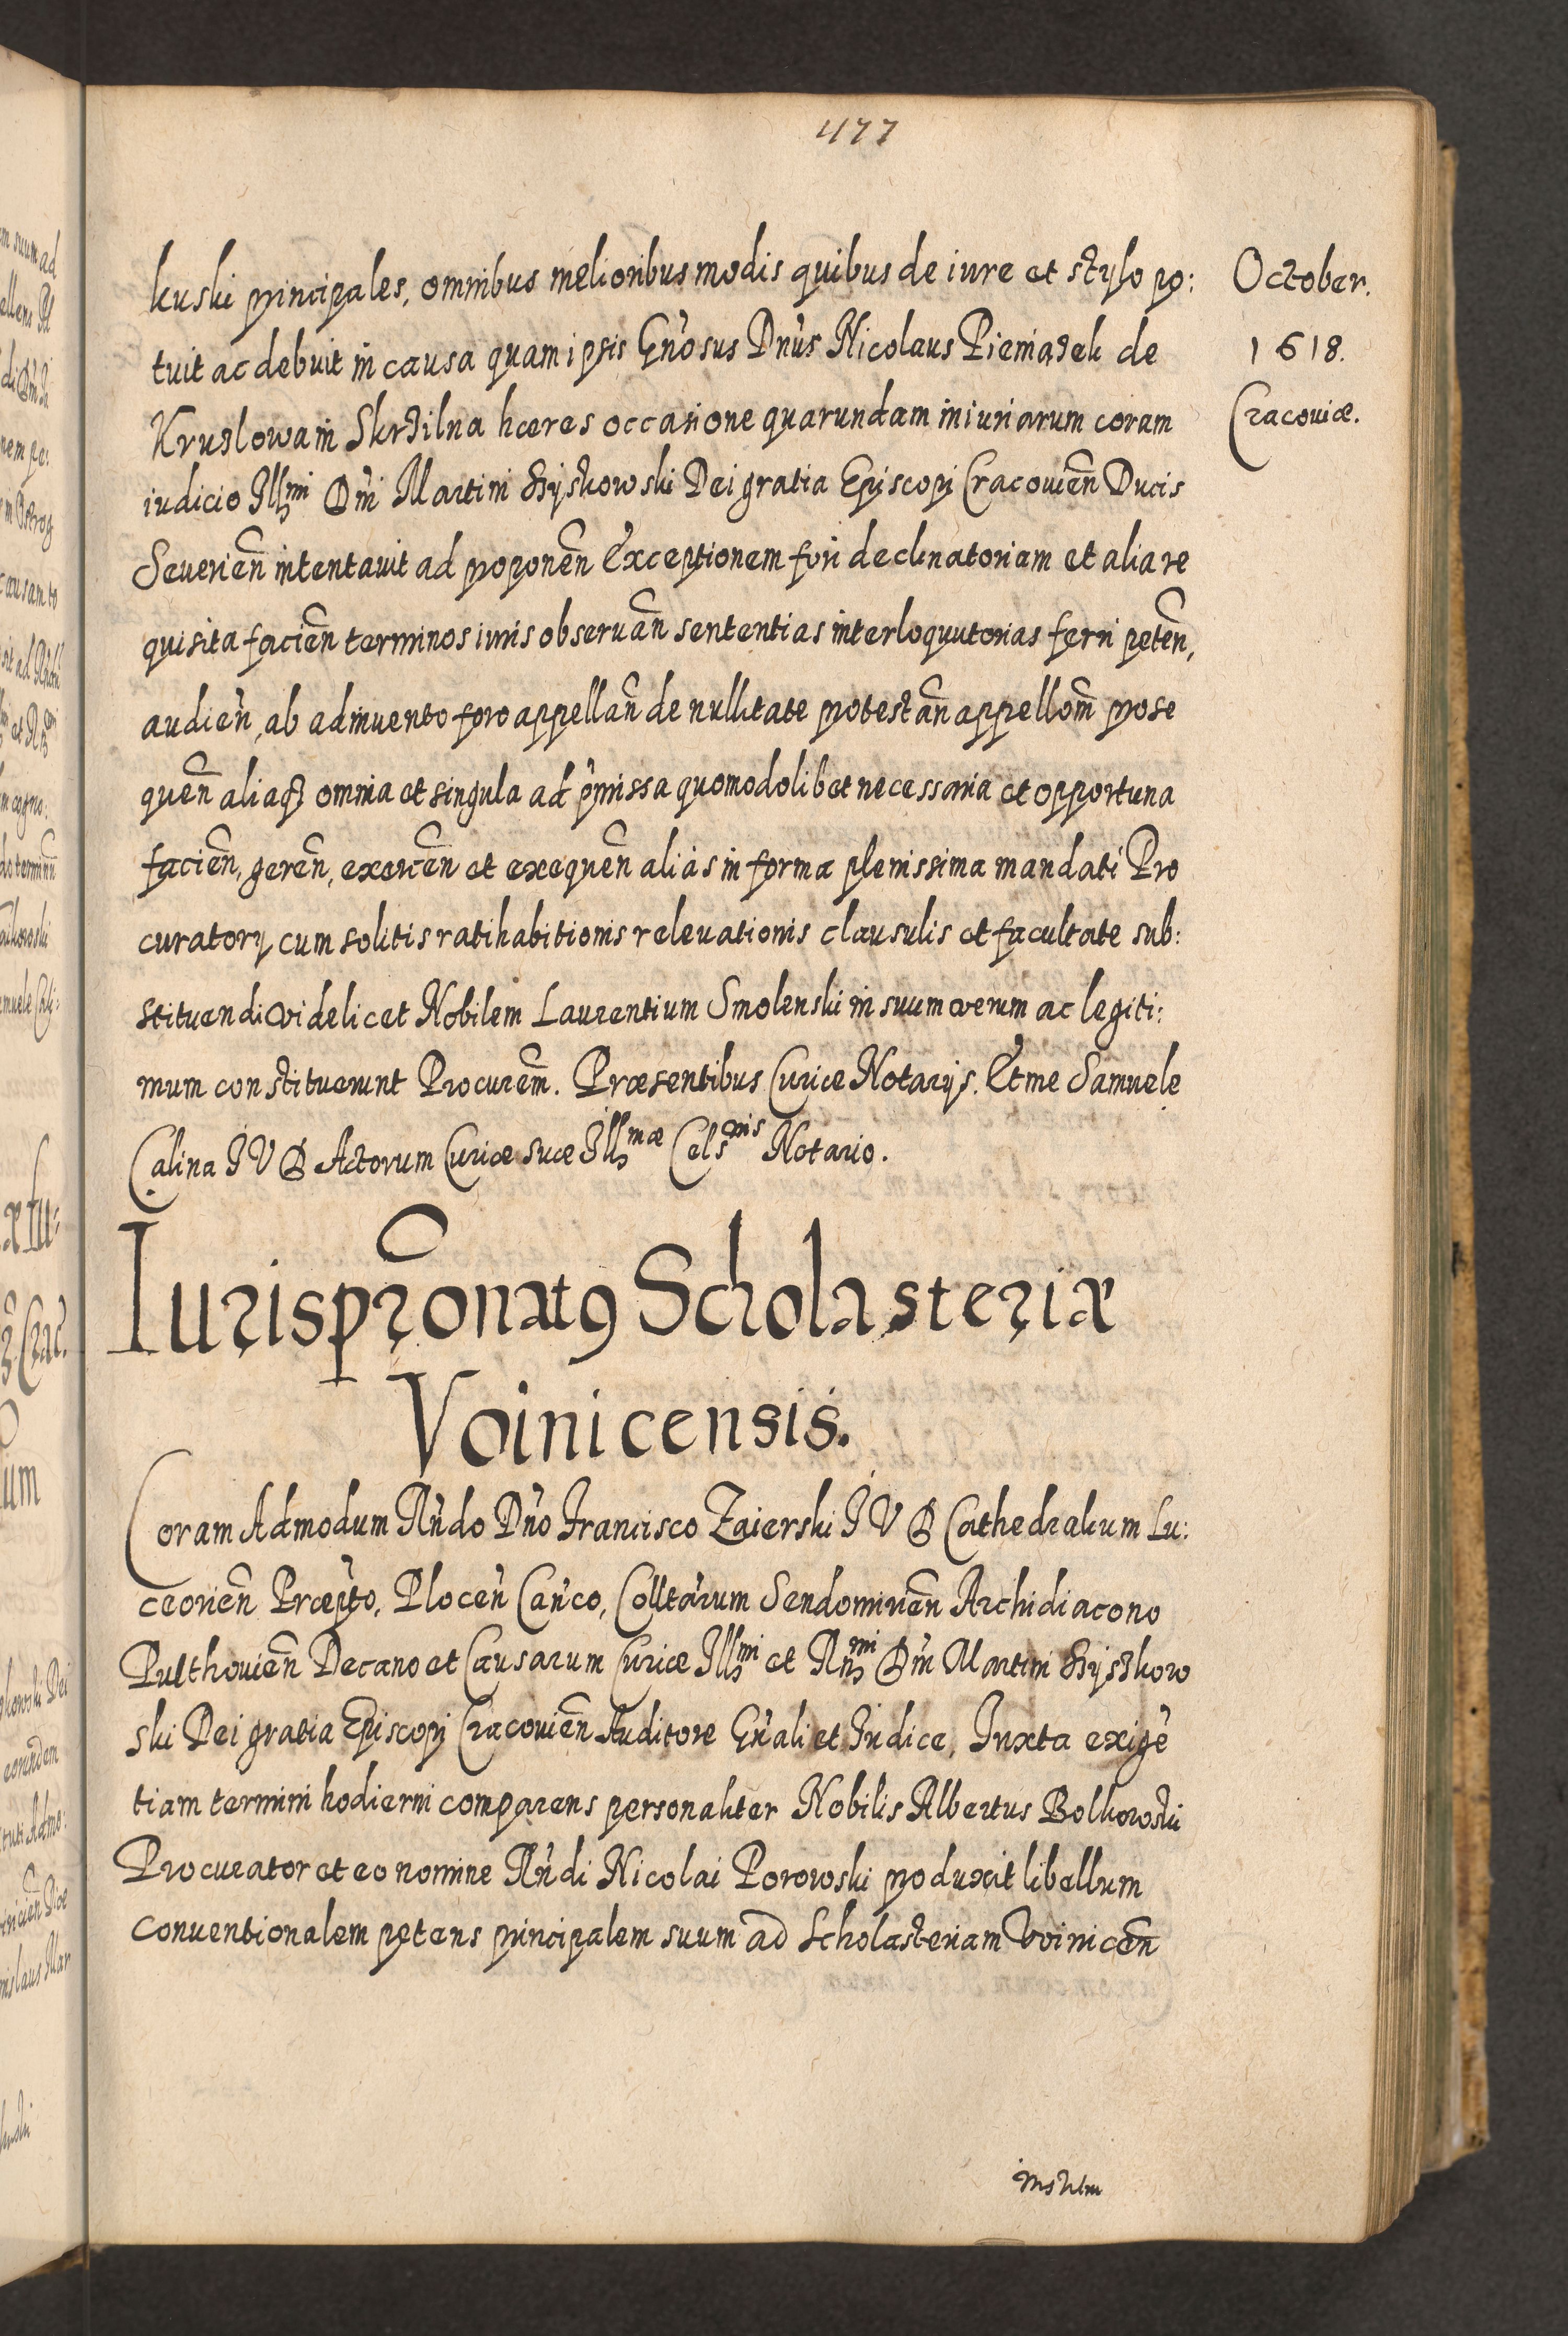 477
kuski principales, omnibus melioribus modis quibus de iure et stylo po:
tuit ac debuit in causa quam ipsis Gnosus Dnus Nicolaus Pieniązek de
Kruzlowa in Skrzilna hæres occasione quarundam iniuriarum coram
iudicio Illmi Dni Martini Szyszkowski Dei gratia Episcopi Cracouien Ducis
Seuerien intentauit ad proponen Exceptionem fori declinatoriam et alia re
quisita facien terminos iuris obseruan sententias interloquutorias ferri peten,
audien, ab adinuento foro appellan de nullitate protestan appellonem prose
quen aliaq3 omnia et singula ad pmissa quomodolibet necessaria et opportuna
facien, geren, exercen et exequen alias in forma plenissima mandati Pro
curatory cum solitis ratihabitionis releuationis clausulis et facultate sub:
stituendi videlicet Nobilem Laurentium Smolenski in suum verum ac legiti:
mum constituerunt Procurem. Præsentibus Curiæ Notarijs. Et me Samuele
Calina I V D Actorum Curiæ suæ Illmæ Celsnis Notario.
October.
1618.
Cracouiæ.
Iurispronatq Scholasteriæ
Voinicensis.
Coram Admodum Rndo Dno Francisco Zaierski I V D Cathedralium Lu:
ceorien Præpto, Plocen Canco, Colltarum Sendomirien Archidiacono
Pulthouien Decano et Causarum Curiæ Illmi et Rnmi Dni Martini Szyszkow
ski Dei gratia Episcopi Cracouien Auditore Gnali et Iudice, Iuxta exigē
tiam termini hodierni comparens personaliter Nobilis Albertus Bolkowski
Procurator et eo nomine Rndi Nicolai Porowski produxit libellum
conuentionalem petens principalem suum ad Scholasteriam Voinicen